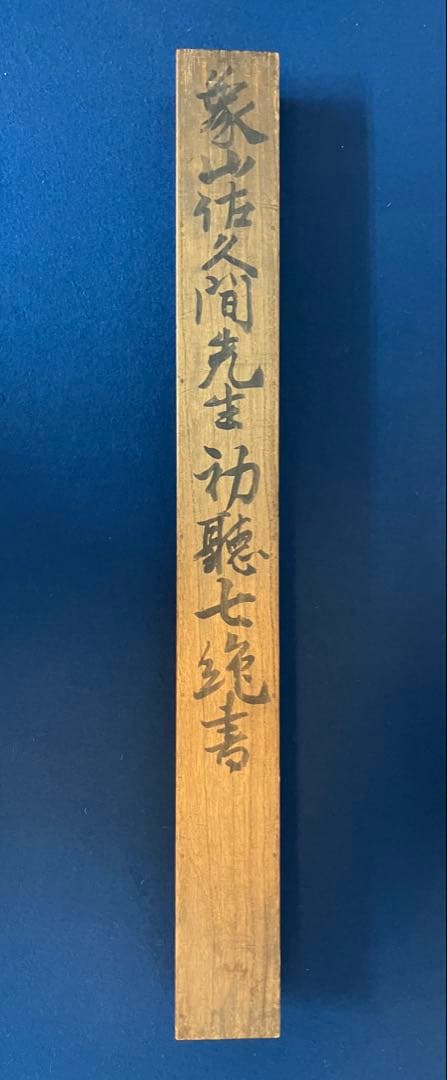 象山佐久間先生初聴七絶書